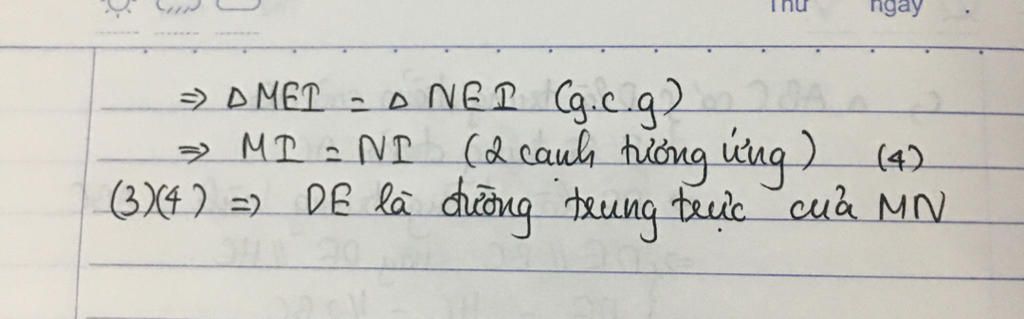 Thứ ngày .
⇒ Δ MEI = Δ NEI (g.c.g)
⇒ MI = NI (2 cạnh tương ứng) (4)
(3)(4) ⇒ DE là đường trung trực của MN